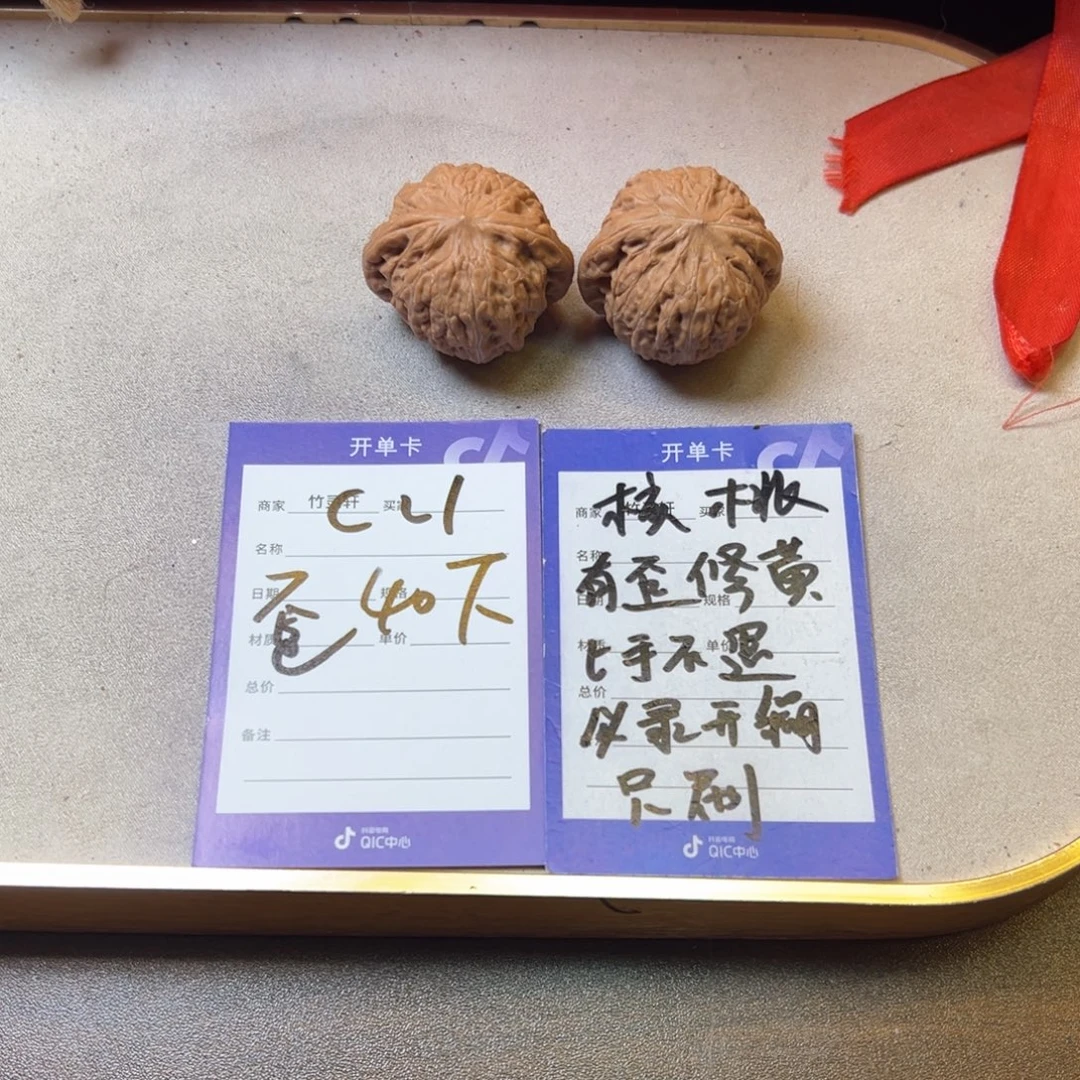 开单卡
商家 竹灵轩 买家
C21
名称
日期 规格
苍 40下
材质 单价
总价
备注
抖音电商
QIC中心
开单卡
商家 买家
核桃
名称
有歪修黄
日期 规格
上手不退
材质 单价
总价
必录开箱
只刷
抖音电商
QIC中心